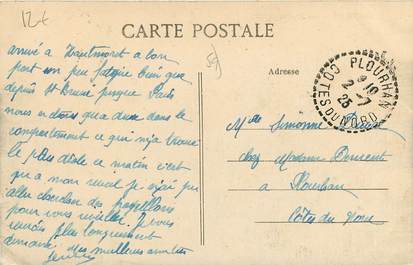 12 €
CARTE POSTALE
arrivé a Hautmoret a bon
port un peu fatigué bien que
depuis St Brieuc jusque Paris
nous n'étions que deux dans le
compartiment ce qui m'a trouvé
le plus drôle ce matin c'est
que a mon réveil je n'ai pu
aller chercher des papillons
pour vous réveiller Je vous
plus longuement
demain
des meilleures amitiés
Adresse
PLOURHAN
COTES DU NORD
Mlle Simonne
chez Madame
a Plourhan
Côtes du Nord